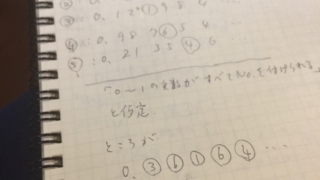 ③: 0. 1 2 ① 9 8 4
④: 0. 9 8 7 ⑥ 5 4
⑤: 0. 2 1 3 5 ④ 6
「0〜1の実数がすべてNo.を付けられる」
と仮定
ところが
0. ③ ⑥ ① ⑥ ④ ...